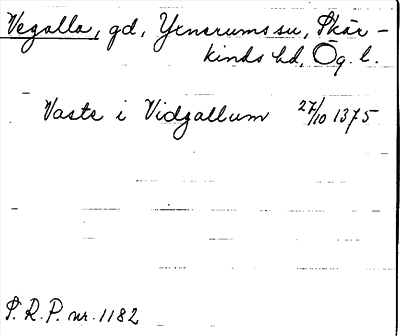 Vegalla, gd, Yxnerums sn, Skär-
kinds hd, Ög. l.
Vaste i Vidgallum 27/10 1375
S.R.P. nr. 1182